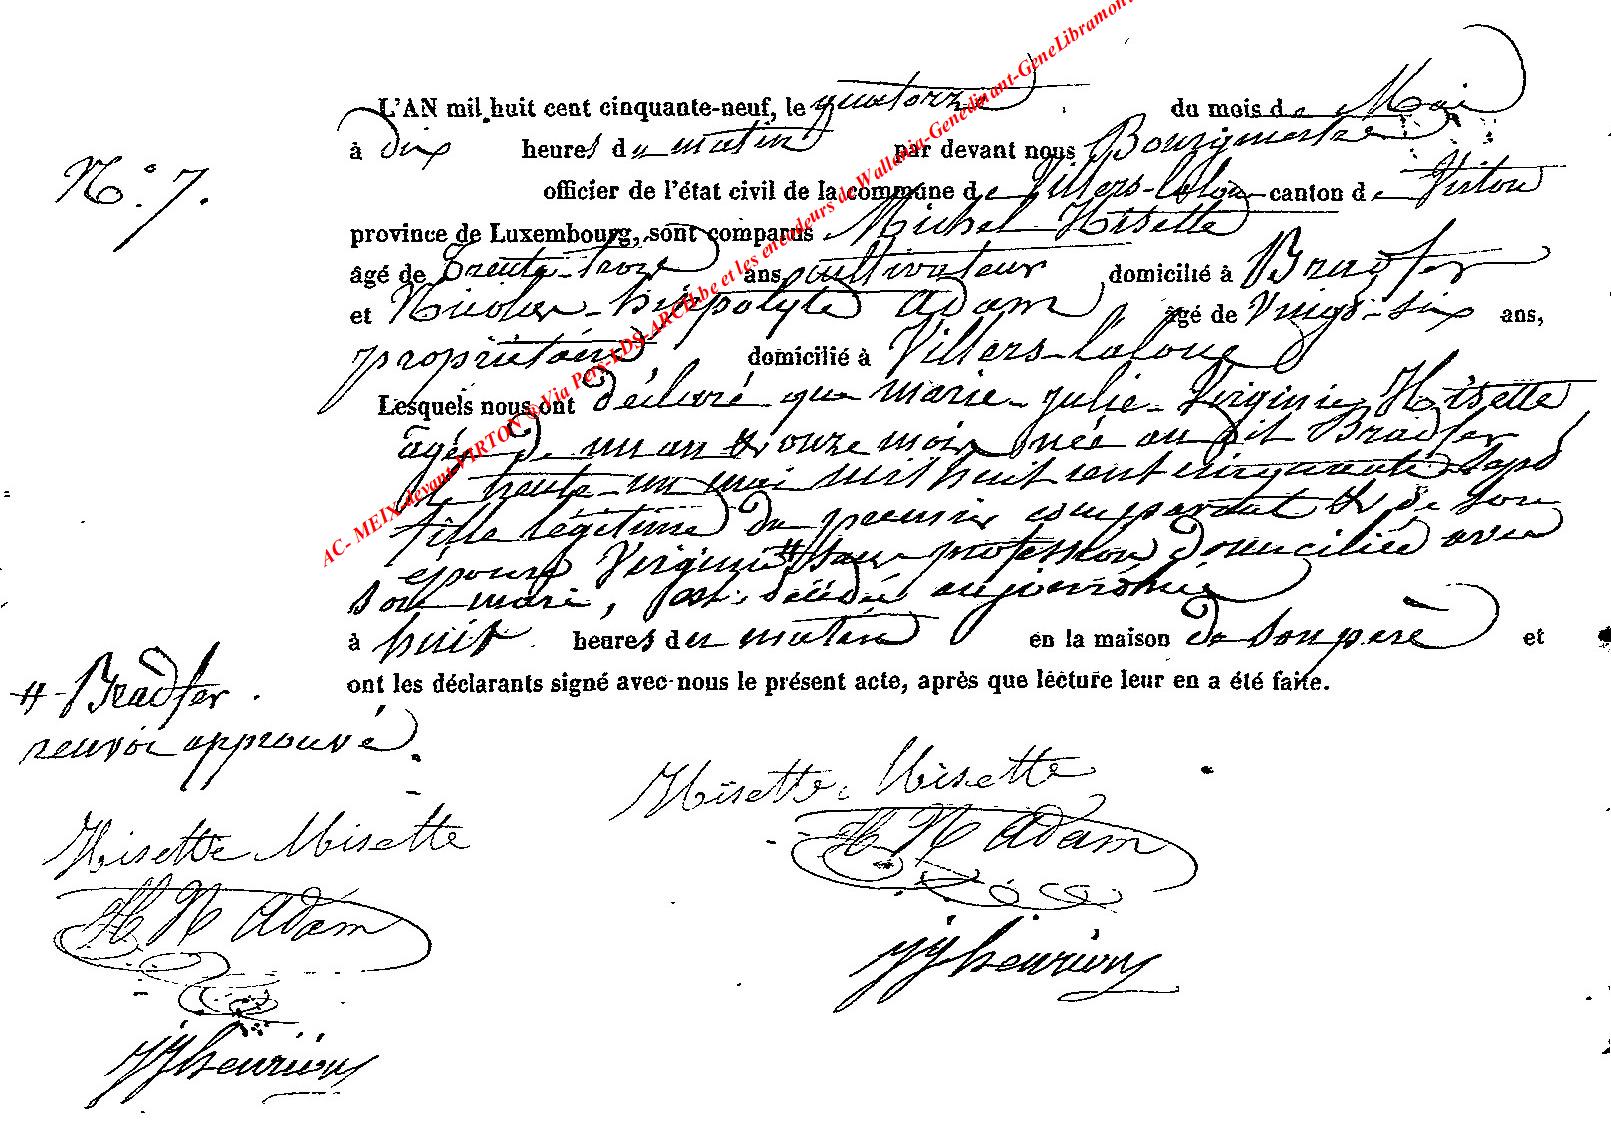 L'AN mil huit cent cinquante-neuf, le quatorze du mois de Mai
à dix heures du matin par devant nous Bourgmestre
N.° 7.
officier de l'état civil de la commune de Villers-laloue canton de Virton
province de Luxembourg, sont comparus Michel Hisette
âgé de trente-trois ans cultivateur domicilié à Bradfer
et Nicolas-hippolyte adam âgé de Vingt-six ans,
propriétaire domicilié à Villers-laloue
Lesquels nous ont déclaré que marie-julie-Virginie Hisette
agée de un an & onze mois née au dit Bradfer
le trente-un mai mil huit cent cinquante sept
fille légitime du premier comparant & de son
épouse Virginie # sans profession, domiciliée avec
son mari, est décédée aujourd'hui
à huit heures du matin en la maison de son père et
ont les déclarants signé avec nous le présent acte, après que lecture leur en a été faite.
# Bradfer
renvoi approuvé.
Hisette
H N Adam
jjhenrion
Hisette
H N Adam
jjhenrion
AC- MEIX devant VIRTON @ Via Pery-LDS-ARCH.be et les encodeurs de Wallonia-Genedinant-GeneLibramont